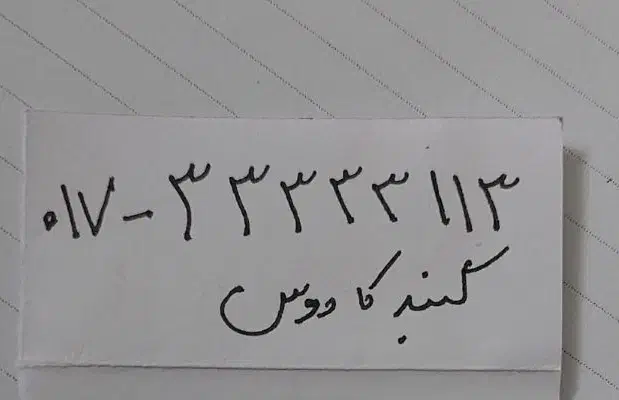 ۰۱۷-۳۳۳۳۳۱۱۳
گنبد کاووس